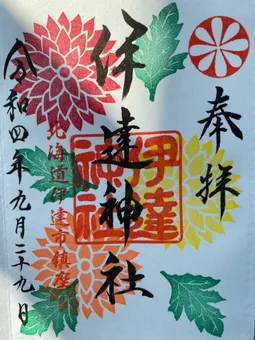 奉拝
伊達神社
伊達神社
北海道伊達市鎮座
令和四年九月二十九日